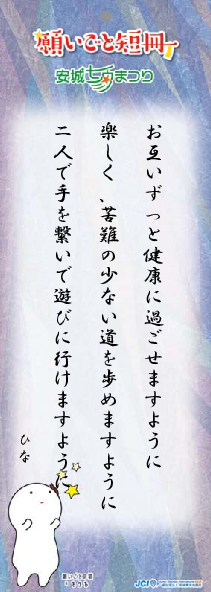 願いごと短冊
安城七夕まつり
お互いずっと健康に過ごせますように
楽しく、苦難の少ない道を歩めますように
二人で手を繋いで遊びに行けますように
ひな
JCI